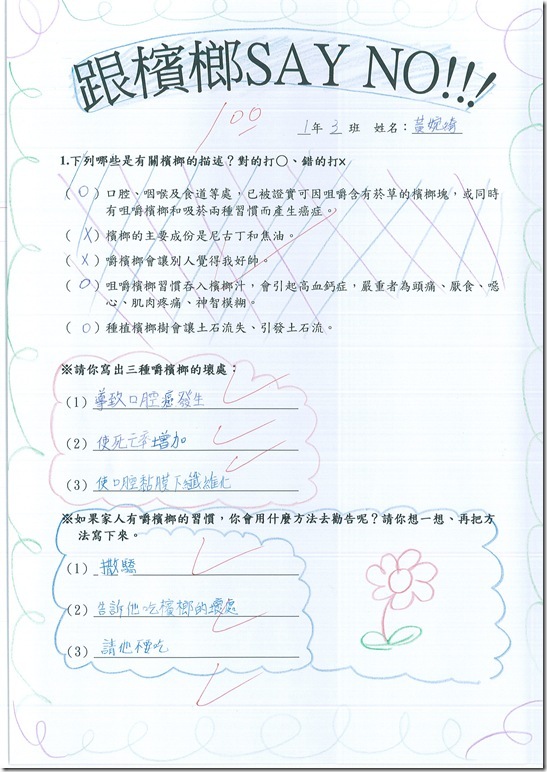 跟檳榔SAY NO!!!
100
1年3班 姓名：黃婉琦
1.下列哪些是有關檳榔的描述？對的打○、錯的打×
(O)口腔、咽喉及食道等處，已被證實可因咀嚼含有菸草的檳榔塊，或同時
有咀嚼檳榔和吸菸兩種習慣而產生癌症。
(X)檳榔的主要成份是尼古丁和焦油。
(X)嚼檳榔會讓別人覺得我好帥。
(O)咀嚼檳榔習慣吞入檳榔汁，會引起高血鈣症，嚴重者為頭痛、厭食、噁
心、肌肉疼痛、神智模糊。
(O)種植檳榔樹會讓土石流失、引發土石流。
※請你寫出三種嚼檳榔的壞處：
(1)導致口腔癌發生
(2)使死亡率增加
(3)使口腔黏膜下纖維化
※如果家人有嚼檳榔的習慣，你會用什麼方法去勸告呢？請你想一想、再把方
法寫下來。
(1)撒驕
(2)告訴他吃檳榔的壞處
(3)請他不要吃